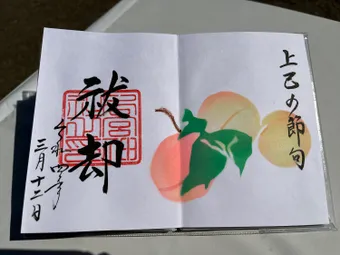 上巳の節句
祓却
令和四年
三月十二日